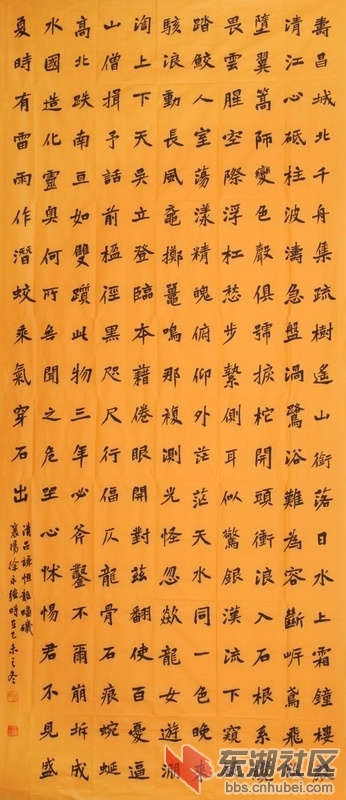 壽昌城北千舟集疏樹遙山銜落日水上霜鐘樓
清江心砥柱波濤急盤渦鷺浴難為容斷岸鳶飛
墮翼篙師變色聲俱號捩柁開頭衝浪入石根系
畏雲腥空際浮杠愁步縶側耳似驚銀漢流下窺
踏鮫人室蕩漾精魄俯仰外茫茫天水同一色晚來
駭浪動長風黿擲鼉鳴那複測光怪忽歘龍女遊澗
淘上下天吳立登臨本藉倦眼開對茲翻使百憂逼
山僧揖予話前楹徑黑咫尺行偪仄龍骨石痕蜿蜒
高北跌南亙如雙躓此物三年必斧鑿不爾崩坼成
水國造化靈奧何所無聞之危坐心怵惕君不見盛
夏時有雷雨作潛蛟乘氣穿石出
清呂謙恒龍蟠磯
襄陽徐永強時在乙未之冬
东湖社区
bbs.cnhubei.com